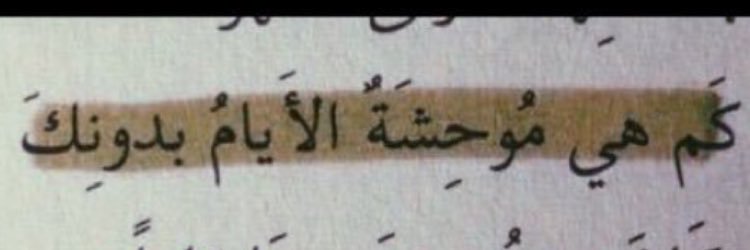 كَم هي مُوحِشَةٌ الأَيامُ بدونِكَ